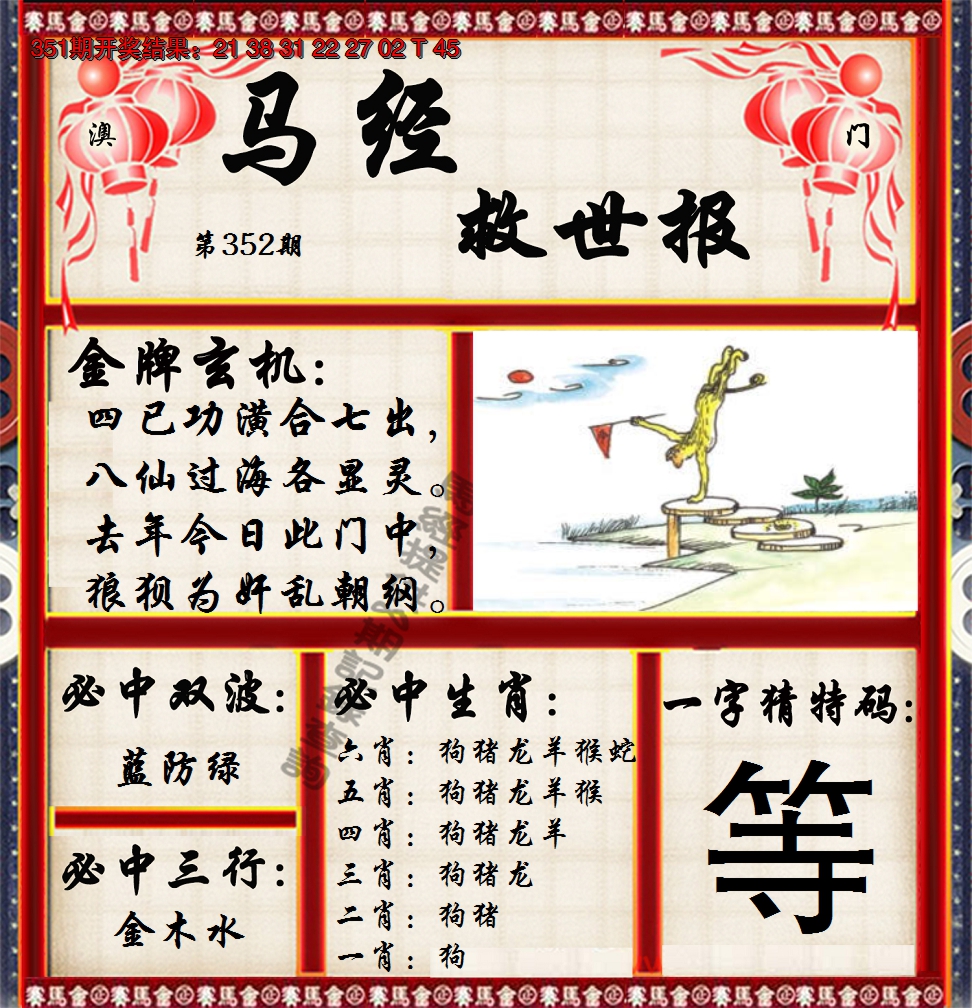 351期开奖结果：21 38 31 22 27 02 T 45
澳
门
马经
救世报
第352期
金牌玄机：
四已功潢合七出，
八仙过海各显灵。
去年今日此门中，
狼狈为奸乱朝纲。
必中双波：
蓝防绿
必中三行：
金木水
必中生肖：
六肖：狗猪龙羊猴蛇
五肖：狗猪龙羊猴
四肖：狗猪龙羊
三肖：狗猪龙
二肖：狗猪
一肖：狗
一字猜特码：
等